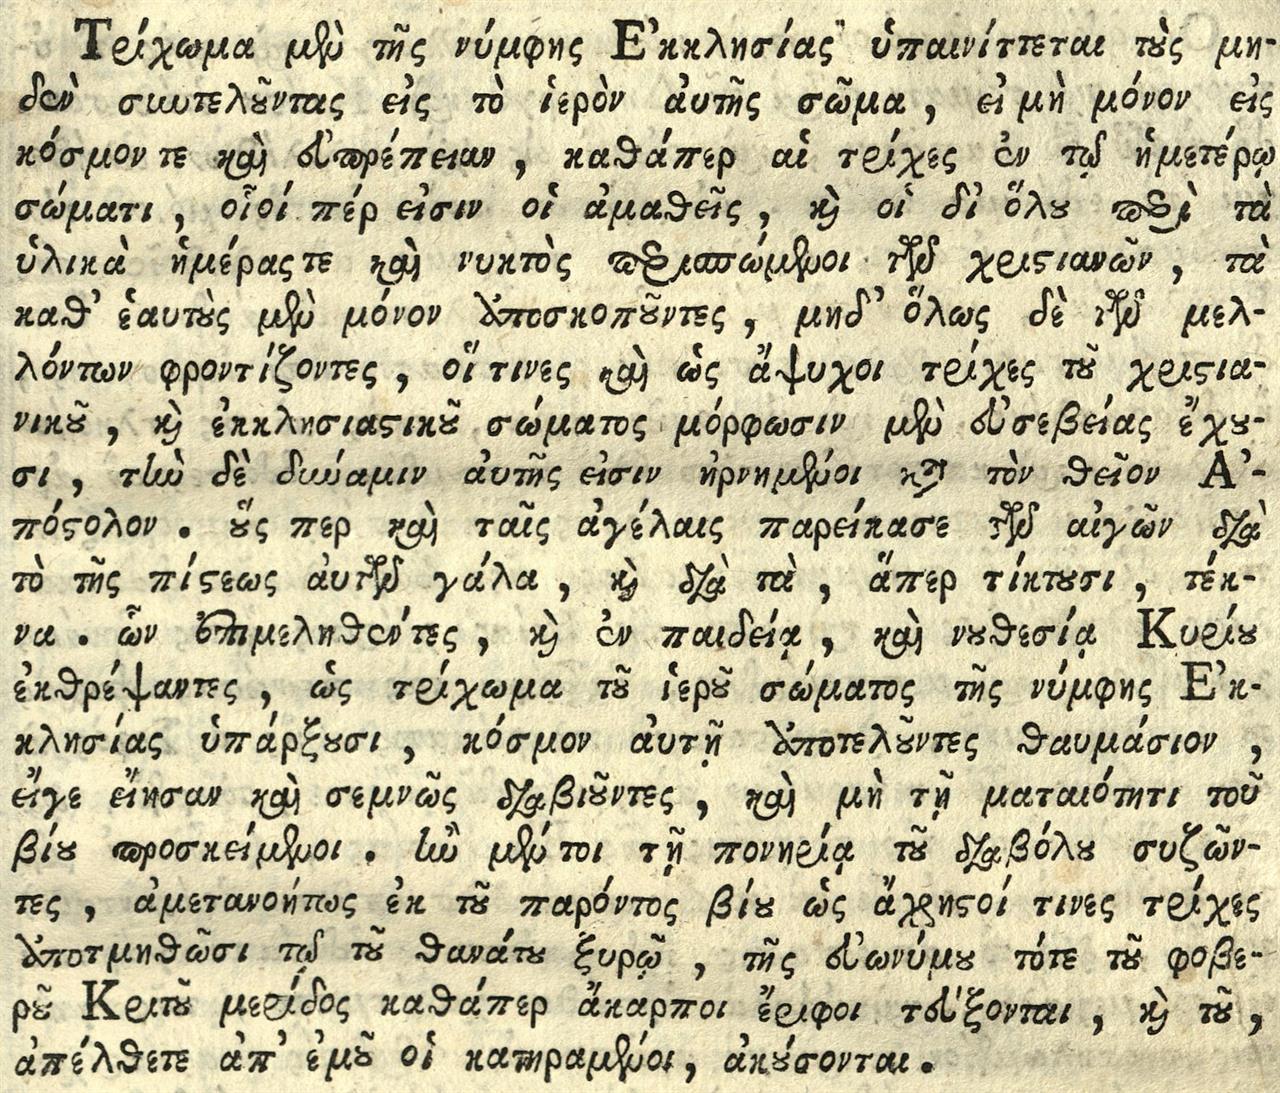 Τρίχωμα μὲν τῆς νύμφης Ἐκκλησίας ὑπαινίττεται τοὺς μη-
δὲν συντελοῦντας εἰς τὸ ἱερὸν ἀυτῆς σῶμα, εἰ μὴ μόνον εἰς
κόσμον τε καὶ εὐπρέπειαν, καθάπερ αἱ τρίχες ἐν τῷ ἡμετέρῳ
σώματι, οἷοί πέρ εἰσιν οἱ ἀμαθεῖς, καὶ οἱ δι' ὅλου περὶ τὰ
ὑλικὰ ἡμέρας τε καὶ νυκτὸς περισπώμενοι τῶν χριστιανῶν, τὰ
καθ' ἑαυτοὺς μὲν μόνον ἀποσκοποῦντες, μηδ' ὅλως δὲ τῶν μελ-
λόντων φροντίζοντες, οἵ τινες καὶ ὡς ἄψυχοι τρίχες τοῦ χριστια-
νικοῦ, καὶ ἐκκλησιαστικοῦ σώματος μόρφωσιν μὲν εὐσεβείας ἔχου-
σι, τὴν δὲ δύναμιν ἀυτῆς εἰσιν ἠρνημένοι κατὰ τὸν θεῖον Ἀ-
πόστολον. οὕς περ καὶ ταῖς ἀγέλαις παρείκασε τῶν αἰγῶν διὰ
τὸ τῆς πίστεως ἀυτῶν γάλα, καὶ διὰ τὰ, ἅπερ τίκτουσι, τέκ-
να. ὧν ἐπιμεληθέντες, καὶ ἐν παιδείᾳ, καὶ νουθεσίᾳ Κυρίου
ἐκθρέψαντες, ὡς τρίχωμα τοῦ ἱεροῦ σώματος τῆς νύμφης Ἐκ-
κλησίας ὑπάρξουσι, κόσμον ἀυτῇ ἀποτελοῦντες θαυμάσιον,
εἴγε εἴησαν καὶ σεμνῶς διαβιοῦντες, καὶ μὴ τῇ ματαιότητι τοῦ
βίου προσκείμενοι. ἢν μέντοι τῇ πονηρίᾳ τοῦ διαβόλου συζῶν-
τες, ἀμετανοήτως ἐκ τοῦ παρόντος βίου ὡς ἄχρηστοί τινες τρίχες
ἀποτμηθῶσι τῷ τοῦ θανάτου ξυρῷ, τῆς εὐωνύμου τότε τοῦ φοβε-
ροῦ Κριτοῦ μερίδος καθάπερ ἄκαρποι ἔριφοι τεύξονται, καὶ τοῦ,
ἀπέλθετε ἀπ' ἐμοῦ οἱ κατηραμένοι, ἀκούσονται.